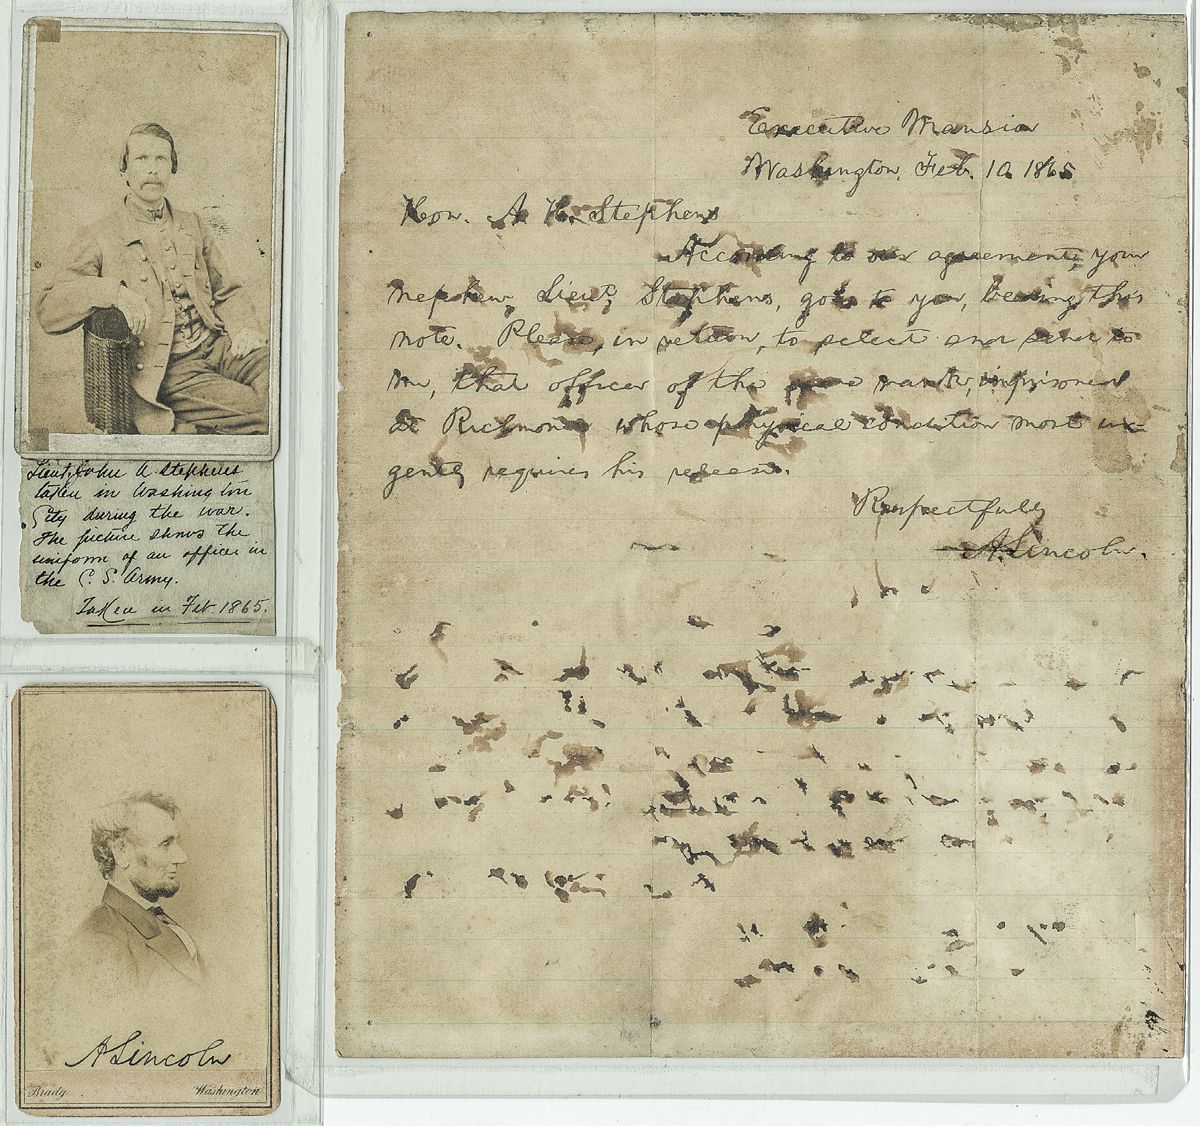 Executive Mansion
Washington, Feb. 10. 1865
Hon. A. H. Stephens
According to our agreement, your
nephew, Lieut. Stephens, goes to you, bearing this
note. Please, in return, to select and send to
me, that officer of the same rank, imprisoned
at Richmond, whose physical condition most ur-
gently requires his release.
Respectfully
A. Lincoln.
Lieut, John A Stephens
taken in Washington
City during the war.
The picture shows the
uniform of an officer in
the C. S. Army.
Taken in Feb 1865.
A Lincoln
Brady. Washington